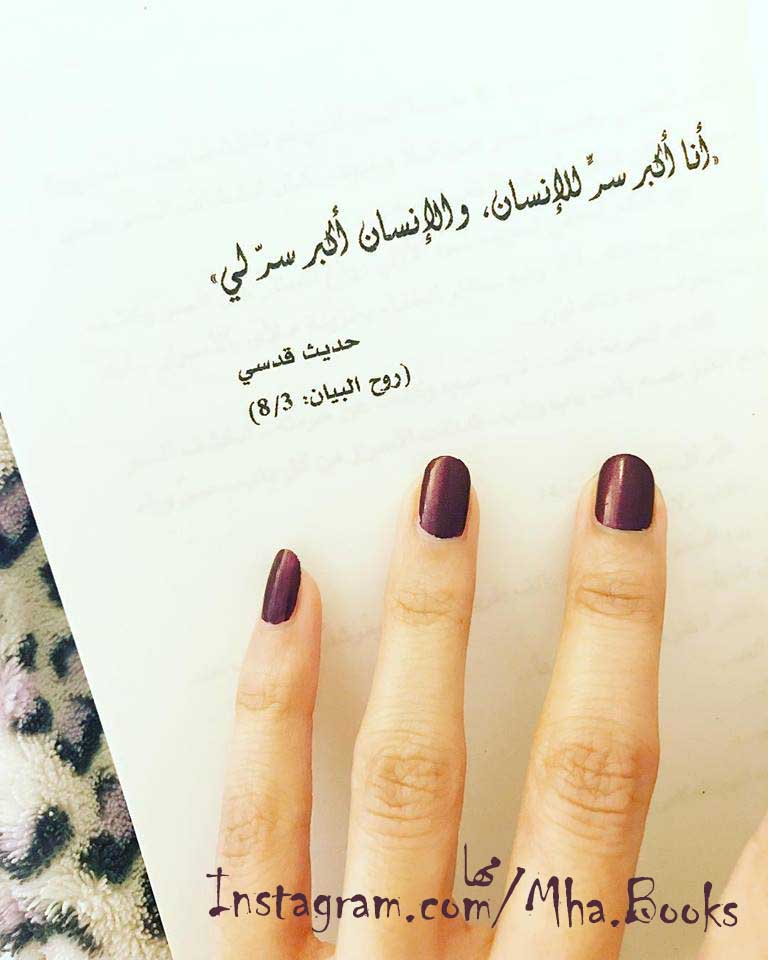 «أنا أكبر سرٍّ للإنسان، والإنسان أكبر سرّ لي»
حديث قدسي
(روح البيان: 8/3)
مها
Instagram.com/Mha.Books